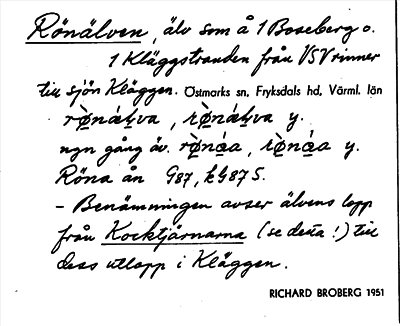 Rönälven, älv som å 1 Boseberg o.
1 Kläggstranden från VSV rinner
till sjön Kläggen. Östmarks sn, Fryksdals hd, Värml. län
y.
ngn gång äv. y.
Röna ån G87, kG87 S.
- Benämningen avser älvens lopp
från Kocktjärnarna (se detta!) till
dess utlopp i Kläggen.
RICHARD BROBERG 1951